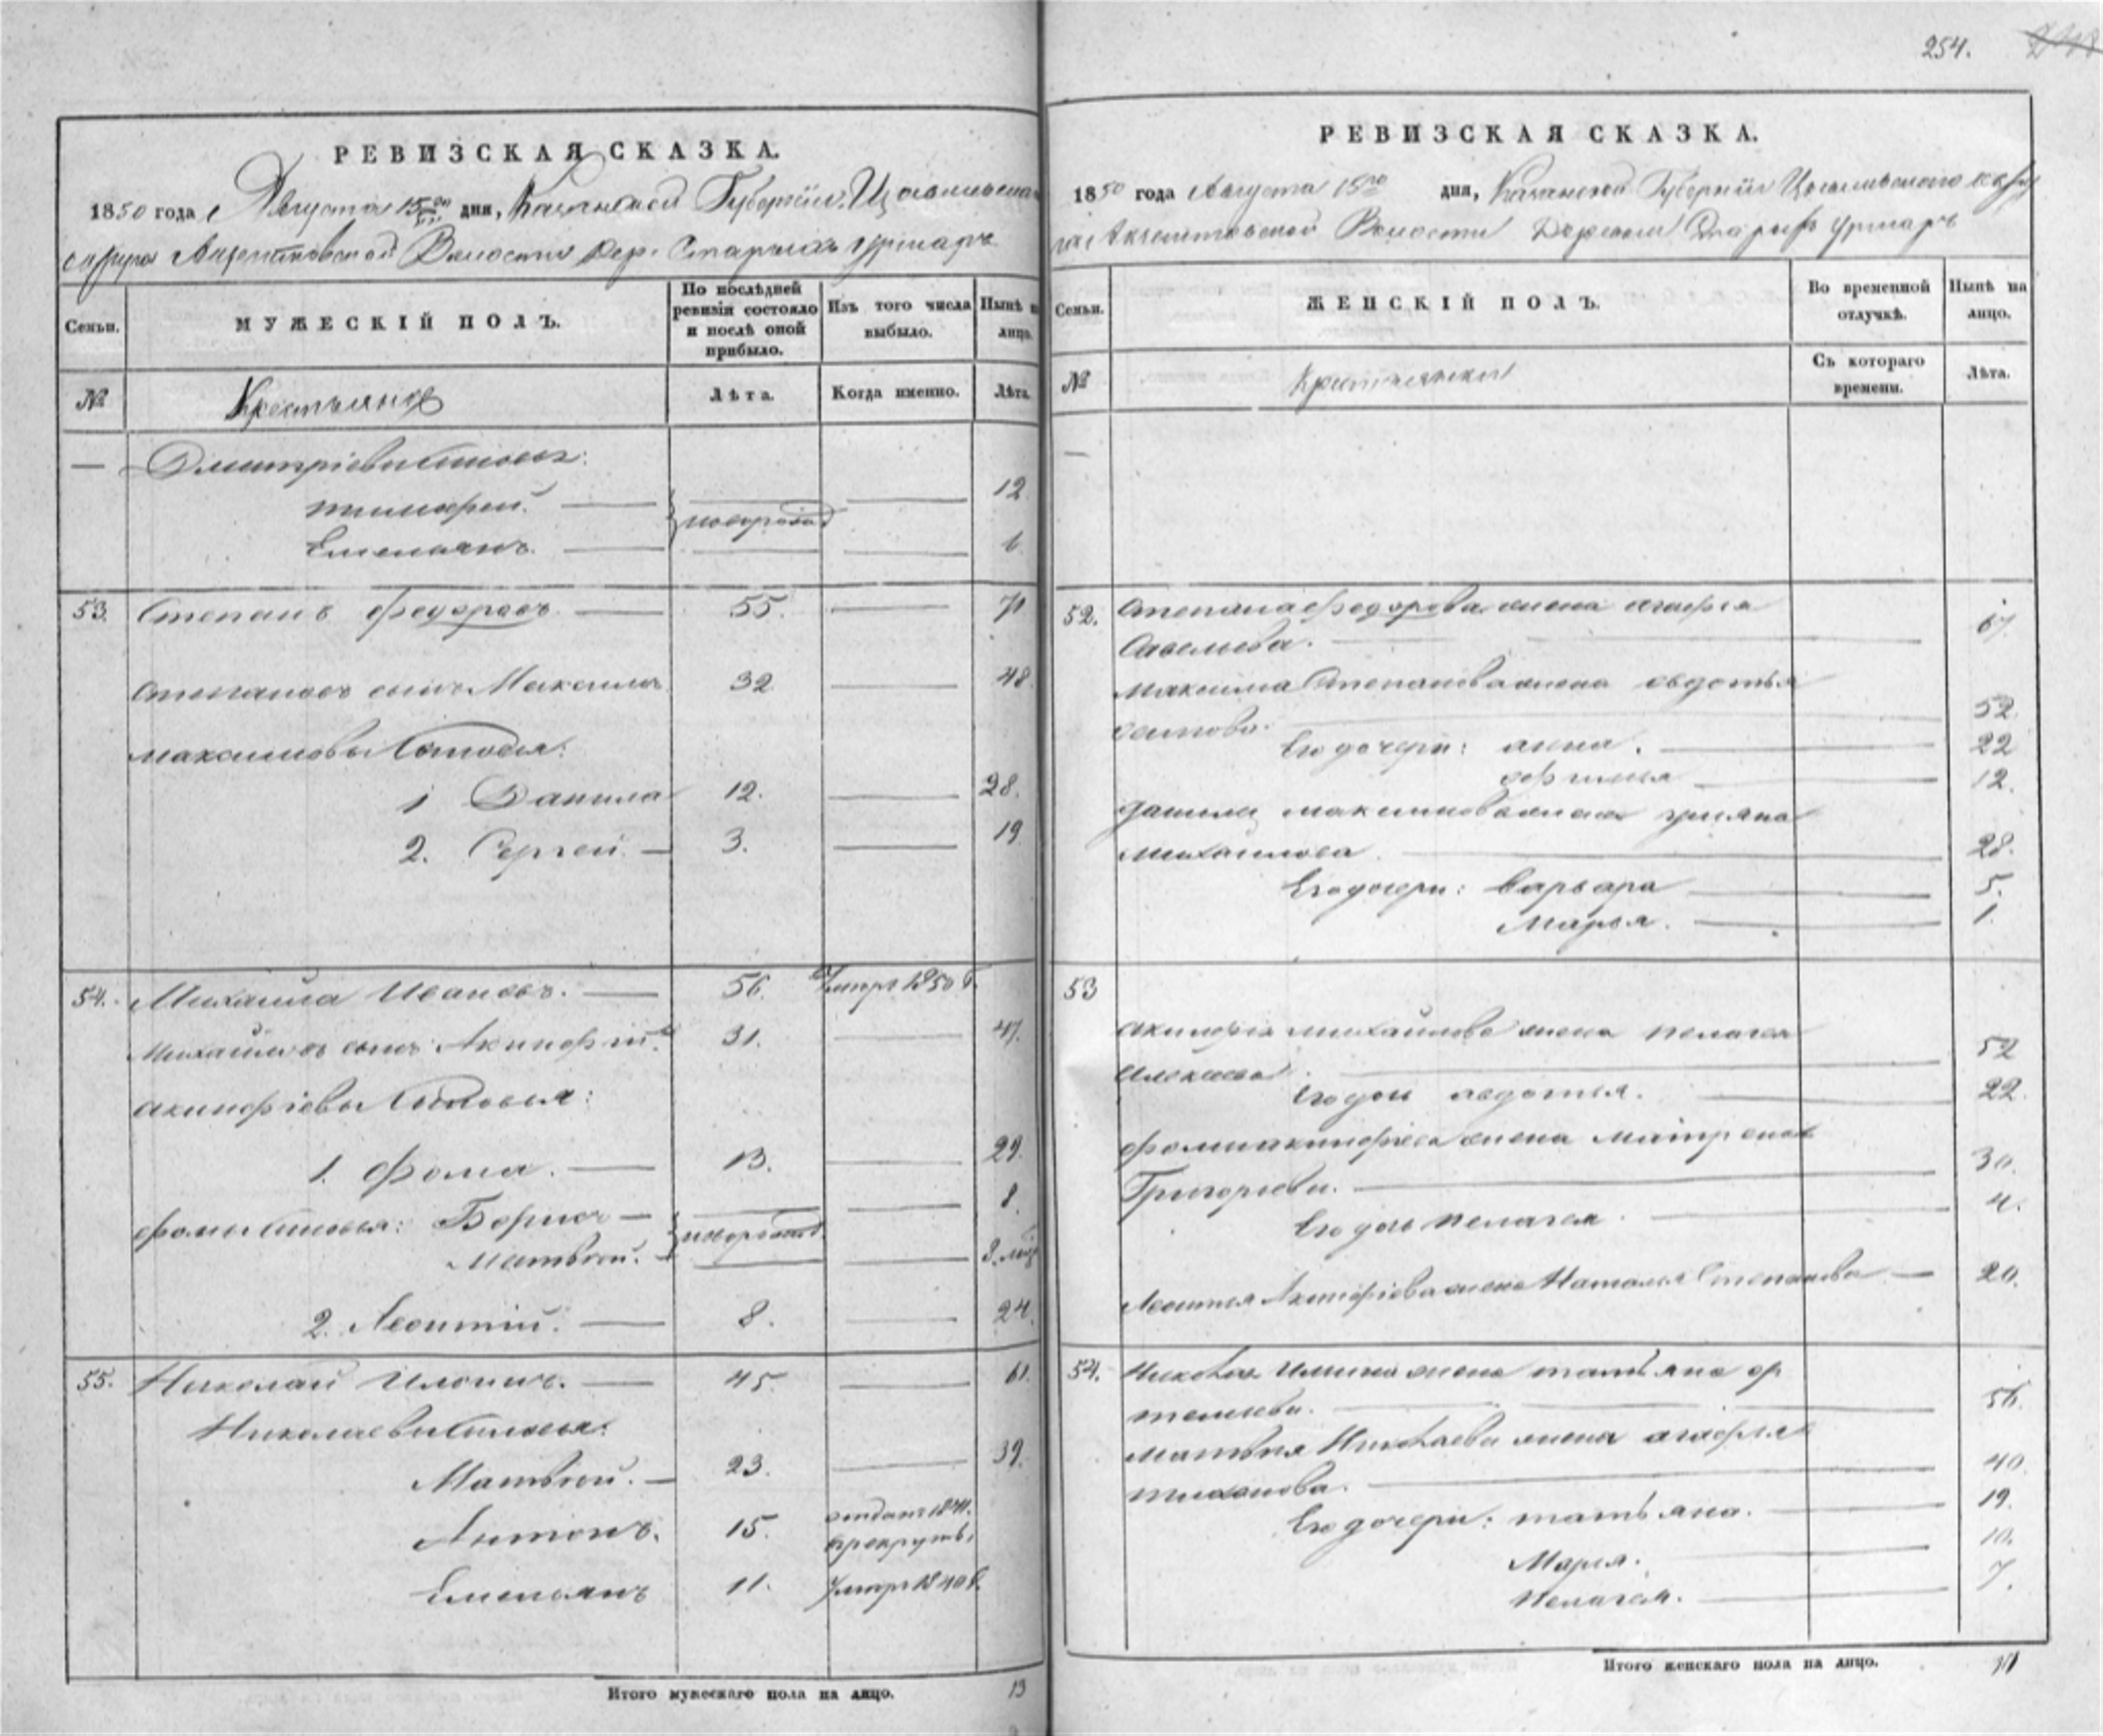 254.
РЕВИЗСКАЯ СКАЗКА.
1850 года Августа 15го дня, Казанской Губернiи, Цивильскаго
округа Волости дер. Старыхъ Урмаръ
Семьи.
МУЖЕСКIЙ ПОЛЪ.
По послѣдней ревизiи состояло и послѣ оной прибыло.
Изъ того числа выбыло.
Нынѣ на лицо.
№
Крестьяне
Лѣта.
Когда именно.
Лѣта.
— Дмитрiевы сыновья:
тимофей. — новорожд — 12
Емельянъ. — — 6
53. Степанъ Федоровъ — 55. — 71
Степановъ сынъ Максимъ 32 — 48
максимовы сыновья:
1 Данила 12. — 28.
2. Сергей — 3. — 19
54. Михайла Ивановъ. — 56. умеръ 1850 г.
Михайловъ сынъ Акинфiй 31. — 47.
акинфiевы сыновья:
1. Фома. — 13. — 29.
фомы сыновья: Борисъ — новорожд — 8.
Матвей. — —
2. Леонтiй. — 8. — 24.
55. Николай Ильинъ. — 45 — 61.
Николаевы сыновья:
Матвей. — 23. — 39.
Антонъ. 15. отданъ 1841. в рекруты.
Емельянъ 11. умеръ 1840 г.
Итого мужескаго пола на лицо. 13
РЕВИЗСКАЯ СКАЗКА.
1850 года Августа 15го дня, Казанской Губернiи Цивильскаго
Волости Деревни Старыхъ Урмаръ
Семьи.
ЖЕНСКIЙ ПОЛЪ.
Во временной отлучкѣ.
Нынѣ на лицо.
№
Крестьянки
Съ котораго времени.
Лѣта.
—
52. Степана Федорова жена агафья
Савельева. — 67.
Максима Степанова жена евдотья
осипова. — 52.
Его дочери: анна. — 22
афимья — 12.
данилы максимова жена ульяна
михайлова. — 28.
Его дочери: Варвара — 5.
Марья. — 1.
53
акинфiя михайлова жена пелагея
алексеева. — 52
Его дочь авдотья. — 22.
фомы акинфiева жена матрена
Григорьева. — 30.
Его дочь пелагея. — 4.
Леонтья Акинфiева жена Наталья Степанова — 20.
54. Николая Ильина жена татьяна ар
темьева. — 56.
матвея Николаева жена агафья
тиханова. — 40.
Его дочери: татьяна. — 19.
Марья. — 10.
Пелагея. — 7.
Итого женскаго пола на лицо.